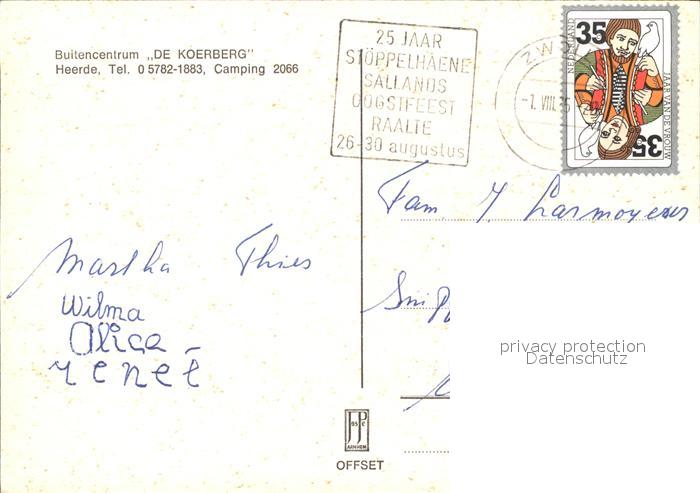 Buitencentrum „DE KOERBERG"
Heerde, Tel. 0 5782-1883, Camping 2066
25 JAAR
STÖPPELHAENE
SALLANDS
OOGSTFEEST
RAALTE
26-30 augustus
ZW
-1. VIII. 75
35
NEDERLAND
JAAR VAN DE VROUW
35
Fam. J. Larmoyeur
Martha Thies
Wilma
Alice
reneé
privacy protection
Datenschutz
JSP
95 C
ARNHEM
OFFSET